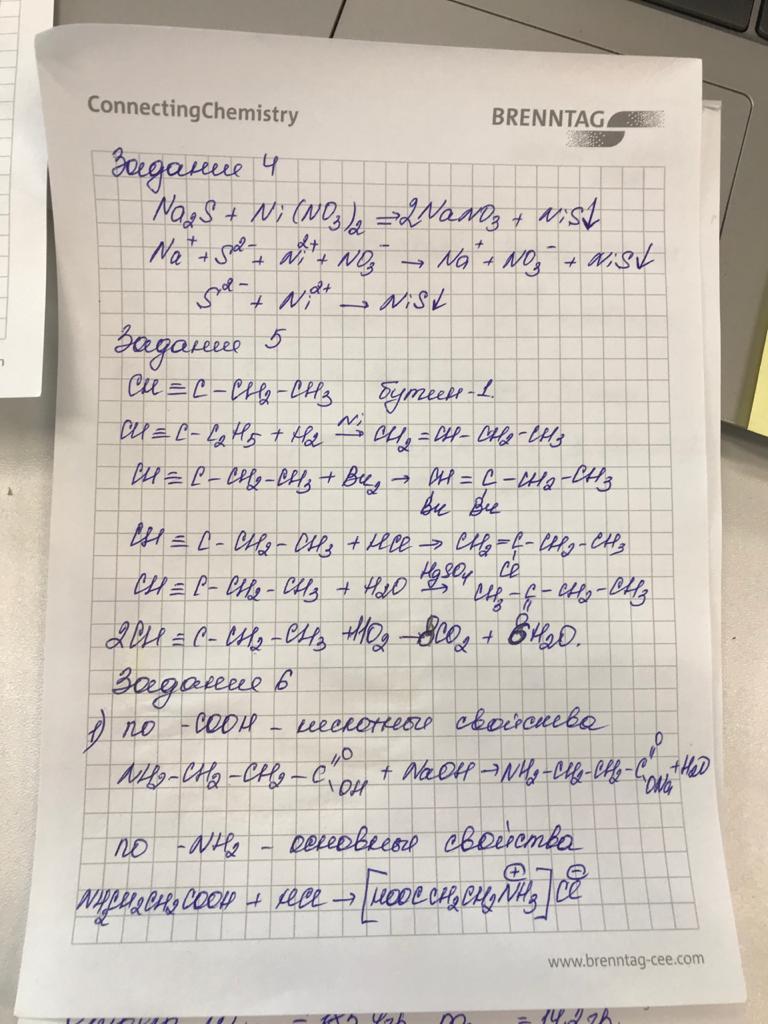 ConnectingChemistry BRENNTAG
Задание 4
Na₂S + Ni(NO₃)₂ ⇒ 2NaNO₃ + NiS↓
Na⁺ + S²⁻ + Ni²⁺ + NO₃⁻ → Na⁺ + NO₃⁻ + NiS↓
S²⁻ + Ni²⁺ → NiS↓
Задание 5
CH ≡ C – CH₂ – CH₃ бутин-1.
CH ≡ C – C₂H₅ + H₂ –Ni→ CH₂ = CH – CH₂ – CH₃
CH ≡ C – CH₂ – CH₃ + Br₂ → CH = C – CH₂ – CH₃
Br Br
CH ≡ C – CH₂ – CH₃ + HCl → CH₂ = C – CH₂ – CH₃
Cl
CH ≡ C – CH₂ – CH₃ + H₂O –HgSO₄→ CH₃ – C – CH₂ – CH₃
O
2CH ≡ C – CH₂ – CH₃ + 11O₂ → 8CO₂ + 6H₂O.
Задание 6
1) по -COOH – кислотные свойства
NH₂–CH₂–CH₂–C(=O)OH + NaOH → NH₂–CH₂–CH₂–C(=O)ONa + H₂O
по -NH₂ – основные свойства
NH₂CH₂CH₂COOH + HCl → [HOOCCH₂CH₂NH₃]⊕ Cl⊖
www.brenntag-cee.com